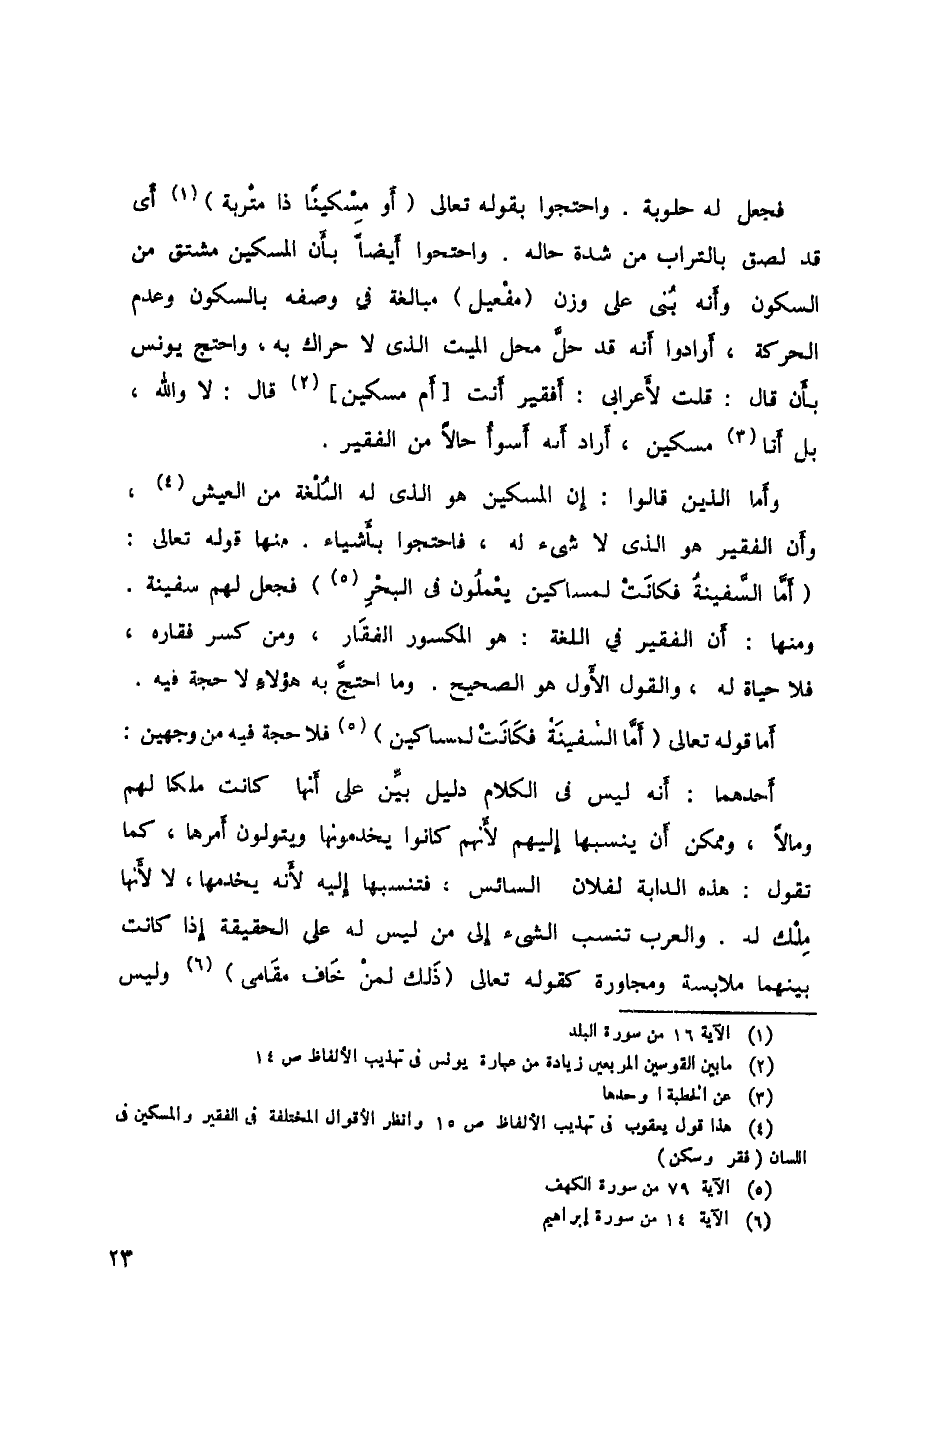 فجعل له حلوبة . واحتجوا بقوله تعالى ( أَو مِسْكينًا ذا متْربة ) (١) أَى
قد لصق بالتراب من شدة حاله . واحتحوا أَيضاً بأَن المسكين مشتق من
السكون وأنه بُنى على وزن (مفْعيل) مبالغة في وصفه بالسكون وعدم
الحركة ، أَرادوا أَنه قد حلَّ محل الميت الذى لا حراك به ، واحتج يونس
بأَن قال : قلت لأَعرابى : أَفقير أَنت [ أَم مسكين] (٢) قال : لا والله ،
بل أَنا (٣) مسكين ، أَراد أَنه أَسوأُ حالاً من الفقير .
وأَما الذين قالوا : إِن المسكين هو الذى له البُلْغة من العيش (٤) ،
وأَن الفقير هو الذى لا شىء له ، فاحتجوا بأَشياء . منها قوله تعالى :
( أَمَّا السَّفينةُ فكانَتْ لمساكين يعْملُون فى البحْرِ (٥) ) فجعل لهم سفينة .
ومنها : أَن الفقير في اللغة : هو المكسور الفقَار ، ومن كسر فقاره ،
فلا حياة له ، والقول الأَول هو الصحيح . وما احتجَّ به هؤلاءِ لا حجة فيه .
أَما قوله تعالى ( أَمَّا السَّفينَةُ فكَانَتْ لمساكين ) (٥) فلا حجة فيه من وجهين :
أَحدهما : أَنه ليس فى الكلام دليل بيِّن على أَنها كانت ملكا لهم
ومالاً ، وممكن أَن ينسبها إِليهم لأَنهم كانوا يخدمونها ويتولون أَمرها ، كما
تقول : هذه الدابة لفلان السائس ، فتنسبها إِليه لأَنه يخدمها ، لا لأَنها
مِلْك له . والعرب تنسب الشىء إِلى من ليس له على الحقيقة إِذا كانت
بينهما ملابسة ومجاورة كقوله تعالى (ذَلك لمنْ خَاف مقَامى ) (٦) وليس
(١) الآية ١٦ من سورة البلد
(٢) مابين القوسين المربعين زيادة من عبارة يونس فى تهذيب الألفاظ ص ١٤
(٣) عن الخطية ا وحدها
(٤) هذا قول يعقوب فى تهذيب الألفاظ ص ١٥ وانظر الأقوال المختلفة فى الفقير والمسكين فى
اللسان ( فقر وسكن )
(٥) الآية ٧٩ من سورة الكهف
(٦) الآية ١٤ من سورة إبراهيم
٢٣